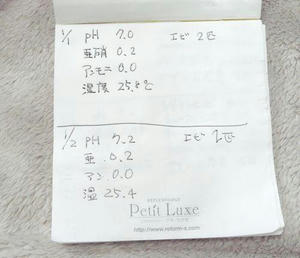 1/1 pH 7.0 エビ 2匹
亜硝 0.2
アンモニ 0.0
温度 25.8℃
1/2 pH 7.2 エビ 2匹
亜 0.2
アン 0.0
温 25.4
Petit Luxe
http://www.reform-s.com